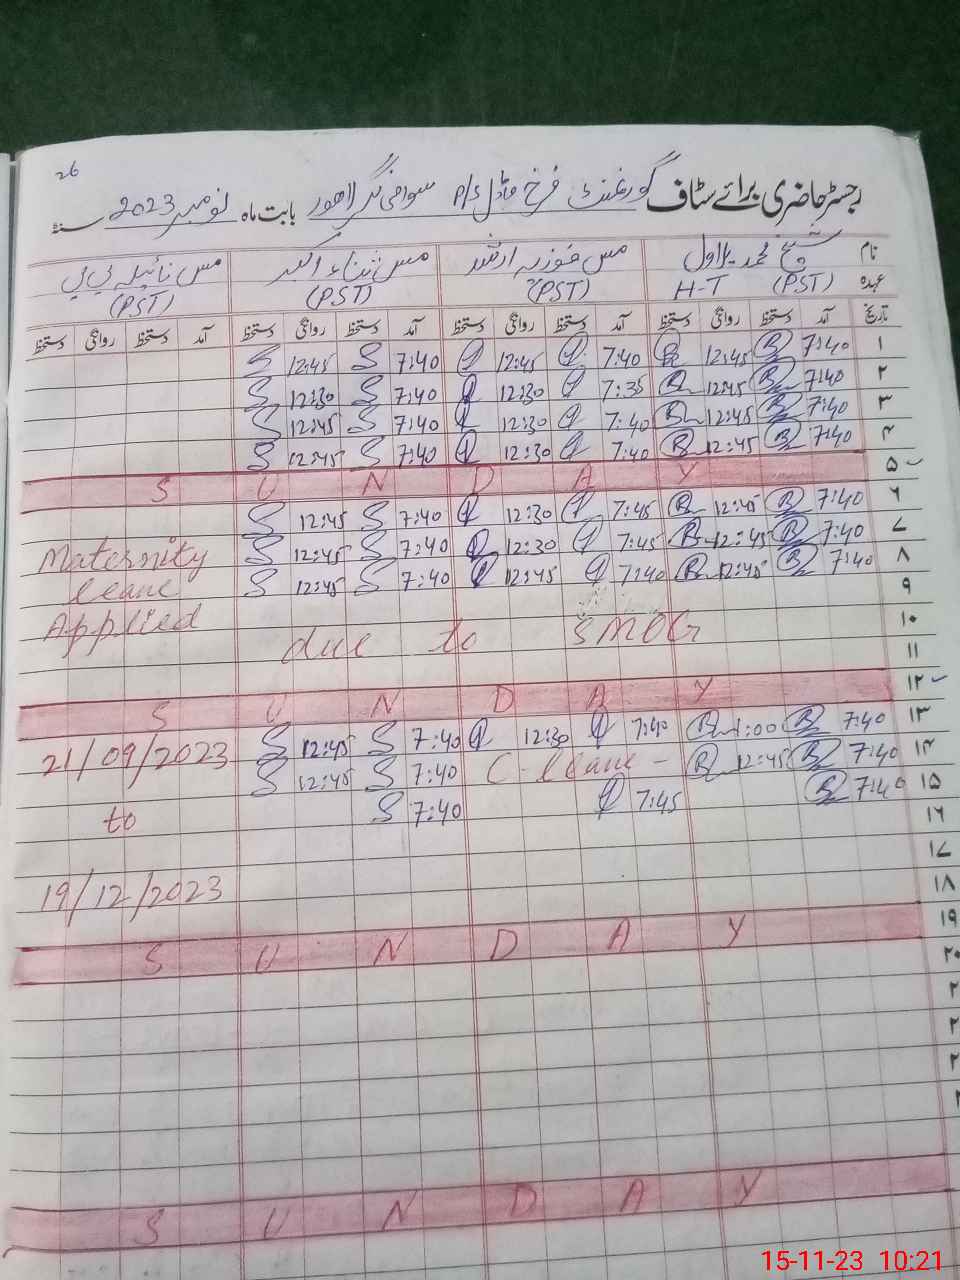 26
رجسٹر حاضری برائے سٹاف گورنمنٹ فرخ ماڈل P/S لاہور بابت ماہ نومبر 2023 سنہ
نام شیخ محمد مس فوزیہ ارشد مس ثناء اکبر مس نائیلہ بی بی
عہدہ (PST) H-T (PST) (PST) (PST)
تاریخ آمد دستخط روانگی دستخط آمد دستخط روانگی دستخط آمد دستخط روانگی دستخط آمد دستخط روانگی دستخط
۱ 7:40 12:45 7:40 12:45 7:40 12:45
۲ 7:40 12:45 7:35 12:30 7:40 12:30
۳ 7:40 12:45 7:40 12:30 7:40 12:45
۴ 7:40 12:45 7:40 12:30 7:40 12:45
۵ S U N D A Y
۶ 7:40 12:45 7:45 12:30 7:40 12:45
۷ 7:40 12:45 7:45 12:30 7:40 12:45 Maternity
۸ 7:40 12:45 7:40 12:45 7:40 12:45 leave
۹ Applied
۱۰ due to SMOG
۱۱
۱۲ S U N D A Y
۱۳ 7:40 1:00 7:40 12:30 7:40 12:45 21/09/2023
۱۴ 7:40 12:45 C-leave - 7:40 12:45
۱۵ 7:40 7:45 7:40 to
۱۶
۱۷
۱۸ 19/12/2023
۱۹ S U N D A Y
۲۰
۲
۲
۲
S U N D A Y
15-11-23 10:21